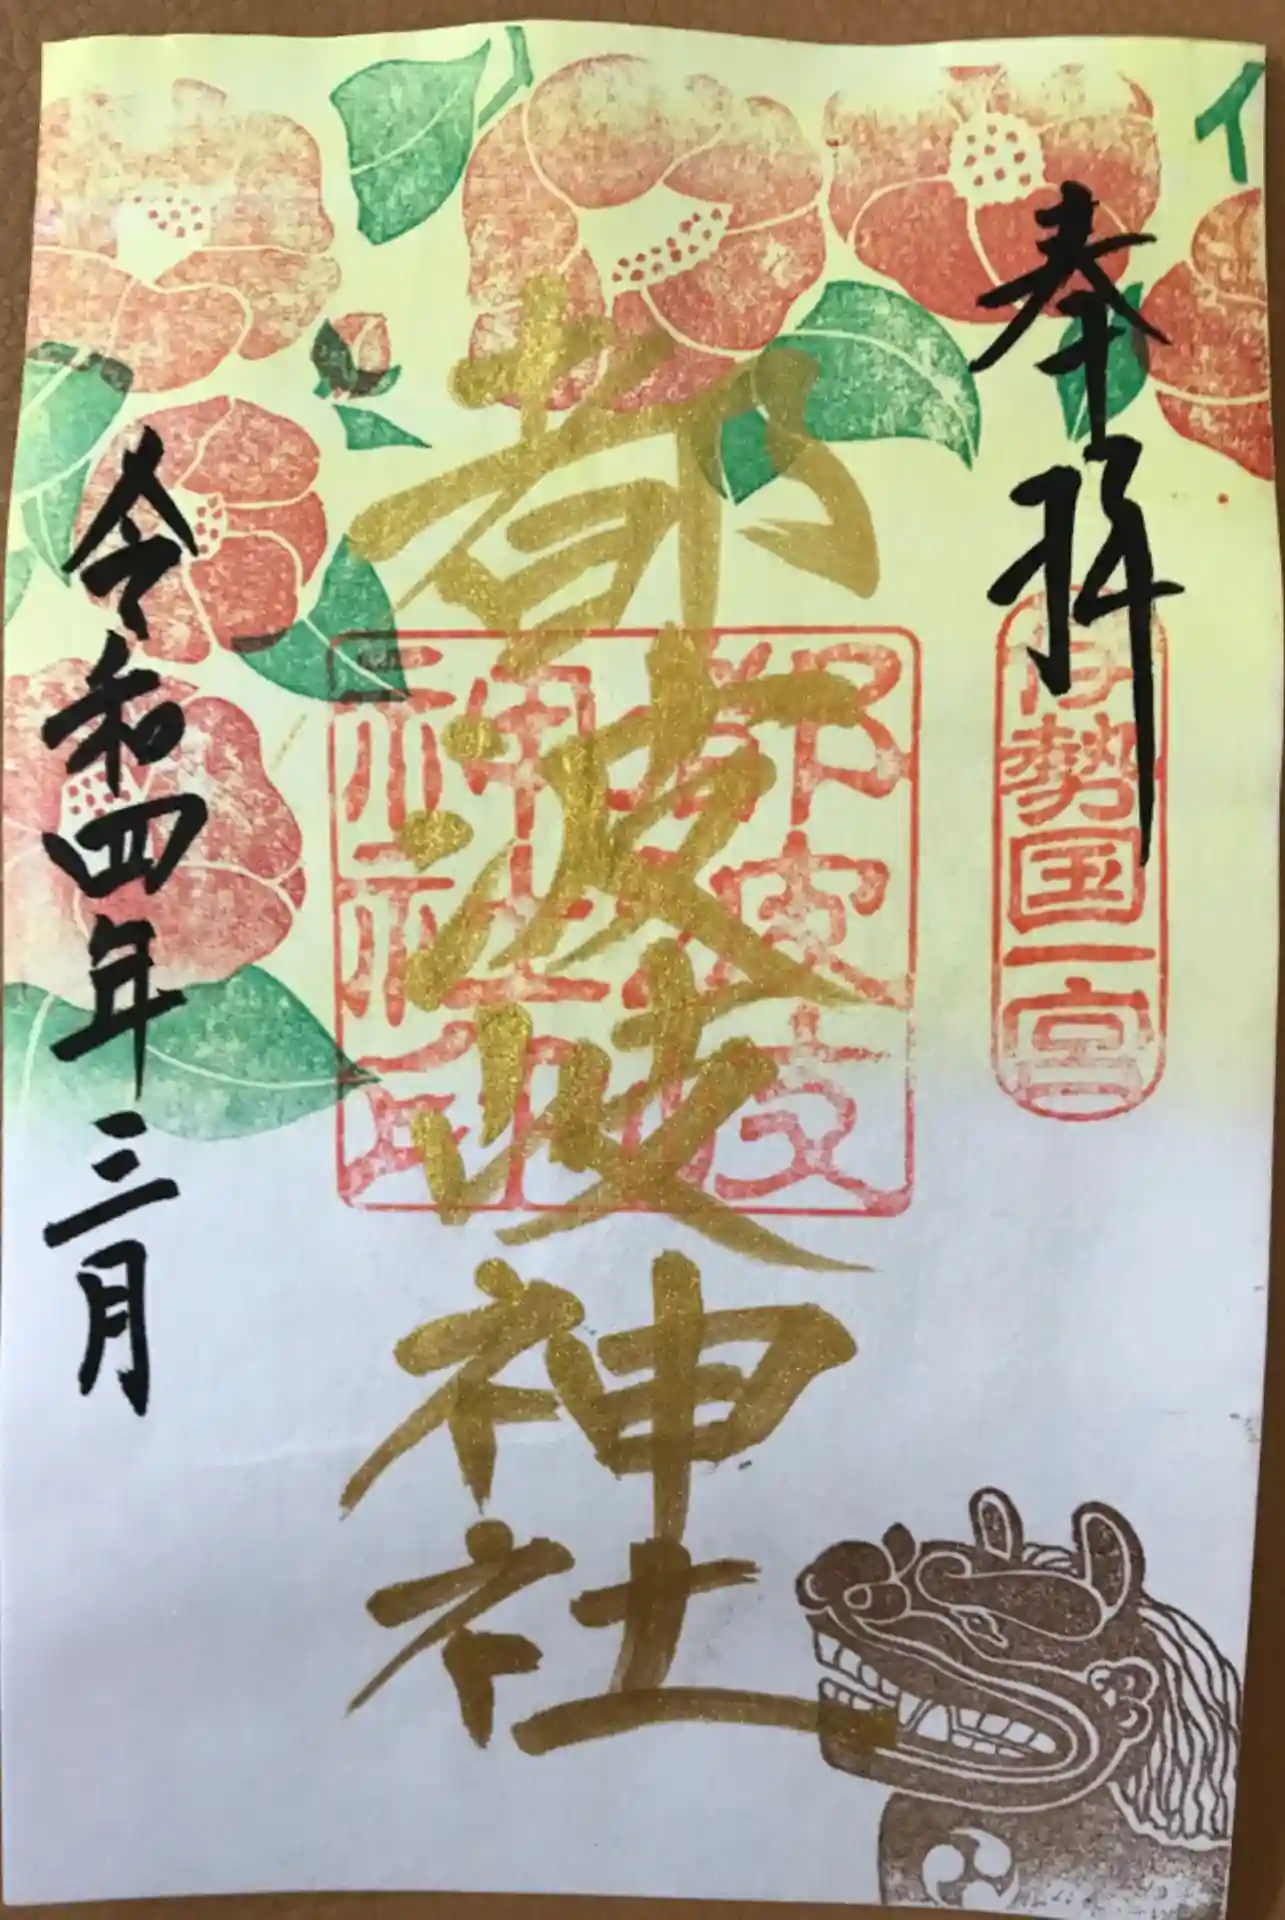 奉拝
伊勢国一宮
都波岐神社
都波岐
神社印
令和四年三月